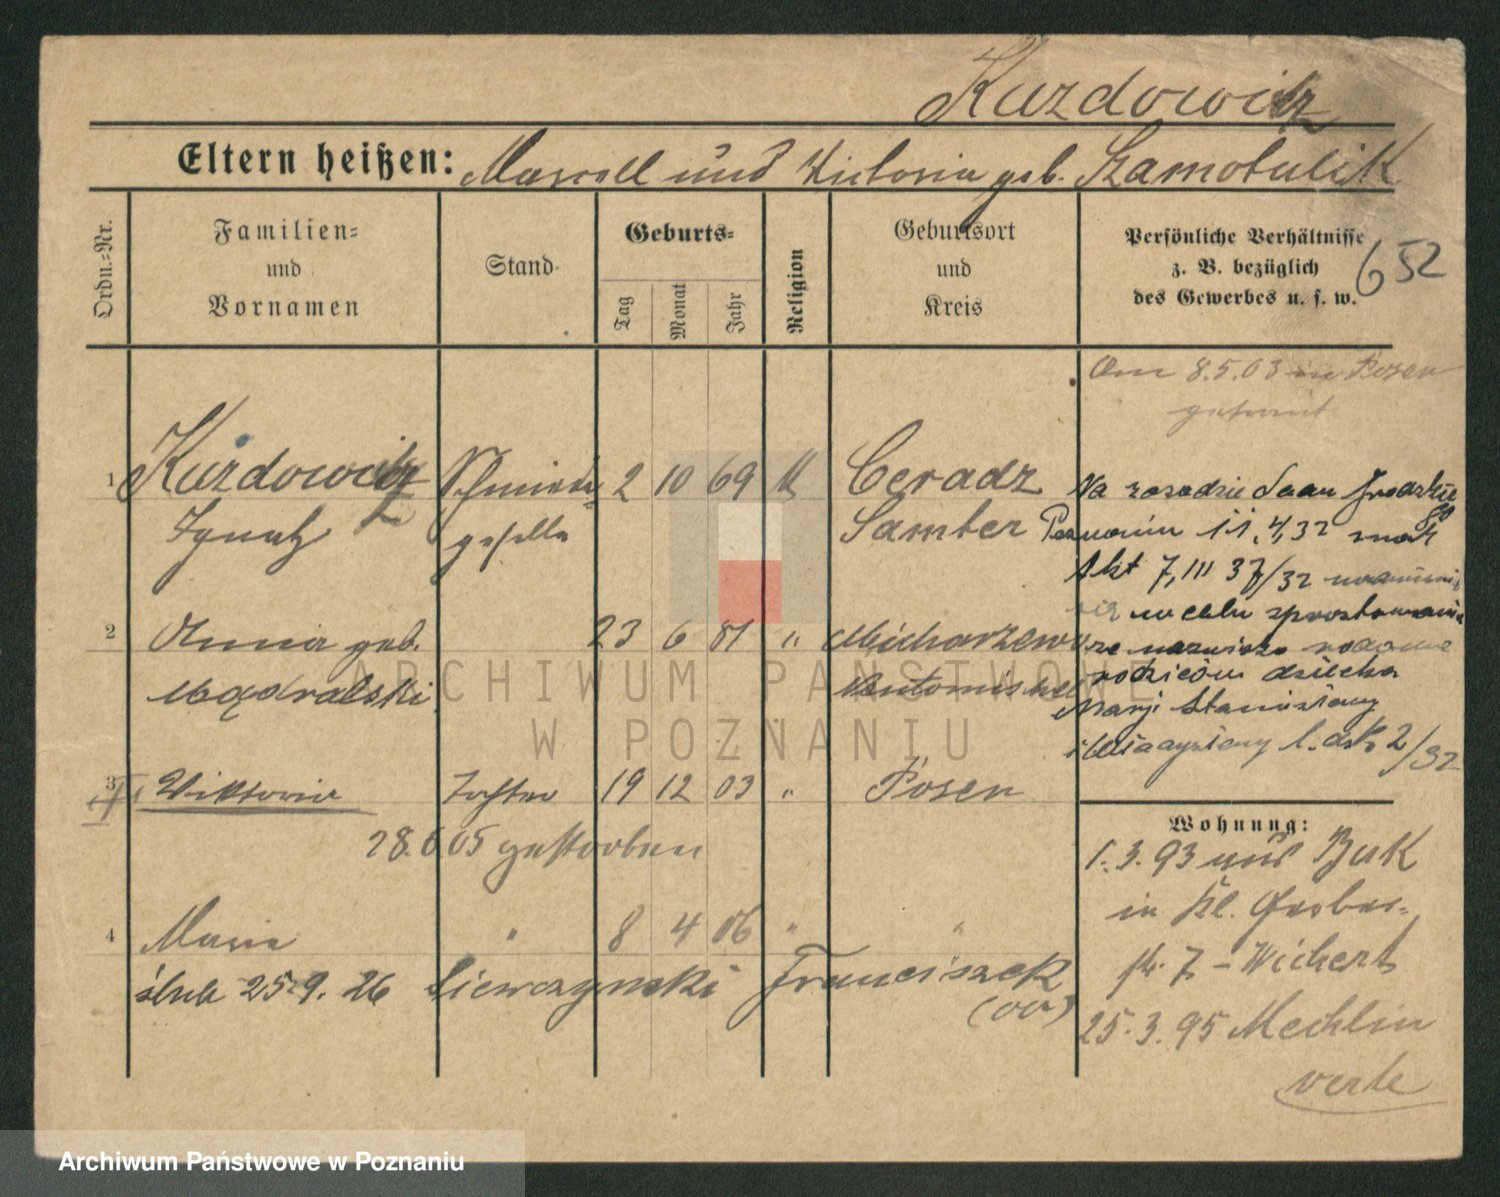 Kuzdowicz
Eltern heißen: Marcell und Victoria geb. Szamotulik
Ordn.-Nr.
Familien-
und
Vornamen
Stand
Geburts-
Tag
Monat
Jahr
Religion
Geburtsort
und
Kreis
Persönliche Verhältnisse
z. B. bezüglich
des Gewerbes u. s. w.
652
Am 8.5.03 in Posen
getraut
1 Kuzdowicz Schmiede- 2 10 69 k Ceradz
Ignatz geselle Samter
Na zasadzie Saau Grodzkie
go Poznaniu 11.4,32 znak
Akt 7,III 37/32
w celu sprostowania
nazwisko rodowe
rodziców dziecka
Marji Stanisławy
l. dz. 2/32
2 Anna geb. 23 6 81 "
Mądralski
3 Wiktoria Tochter 19 12 03 " Posen
28.6.05 gestorben
4 Maria " 8 4 06 " "
ślub 25.9.26 Siewczynski Franciszek
Wohnung:
1.3.93 aus Buk
in Kl. Gerber-
str. 7 - Wichert
25.3.95 Mechlin
verte
ARCHIWUM PAŃSTWOWE
W POZNANIU
Archiwum Państwowe w Poznaniu